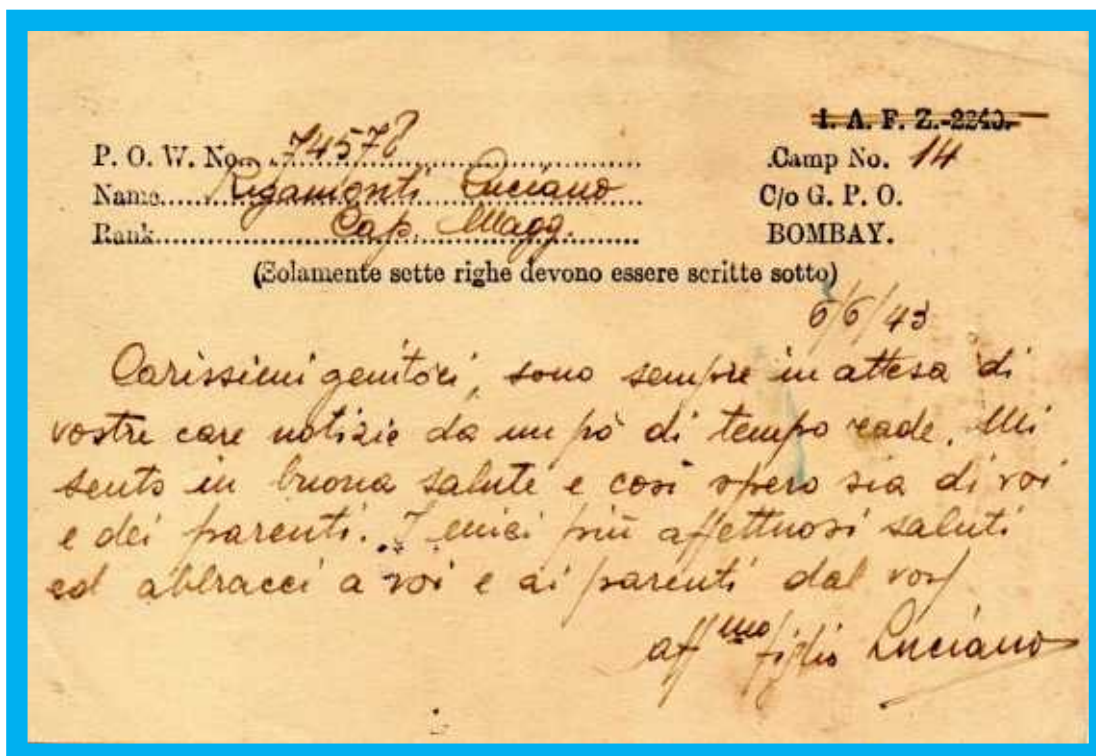 I. A. F. Z.-2240.
P. O. W. No. 74578 Camp No. 14
Name Rigamonti Luciano C/o G. P. O.
Rank Cap. Magg. BOMBAY.
(Solamente sette righe devono essere scritte sotto)
6/6/43
Carissimi genitori, sono sempre in attesa di
vostre care notizie da un pò di tempo rade. Mi
sento in buona salute e così spero sia di voi
e dei parenti. I miei più affettuosi saluti
ed abbracci a voi e ai parenti dal
aff.mo figlio Luciano